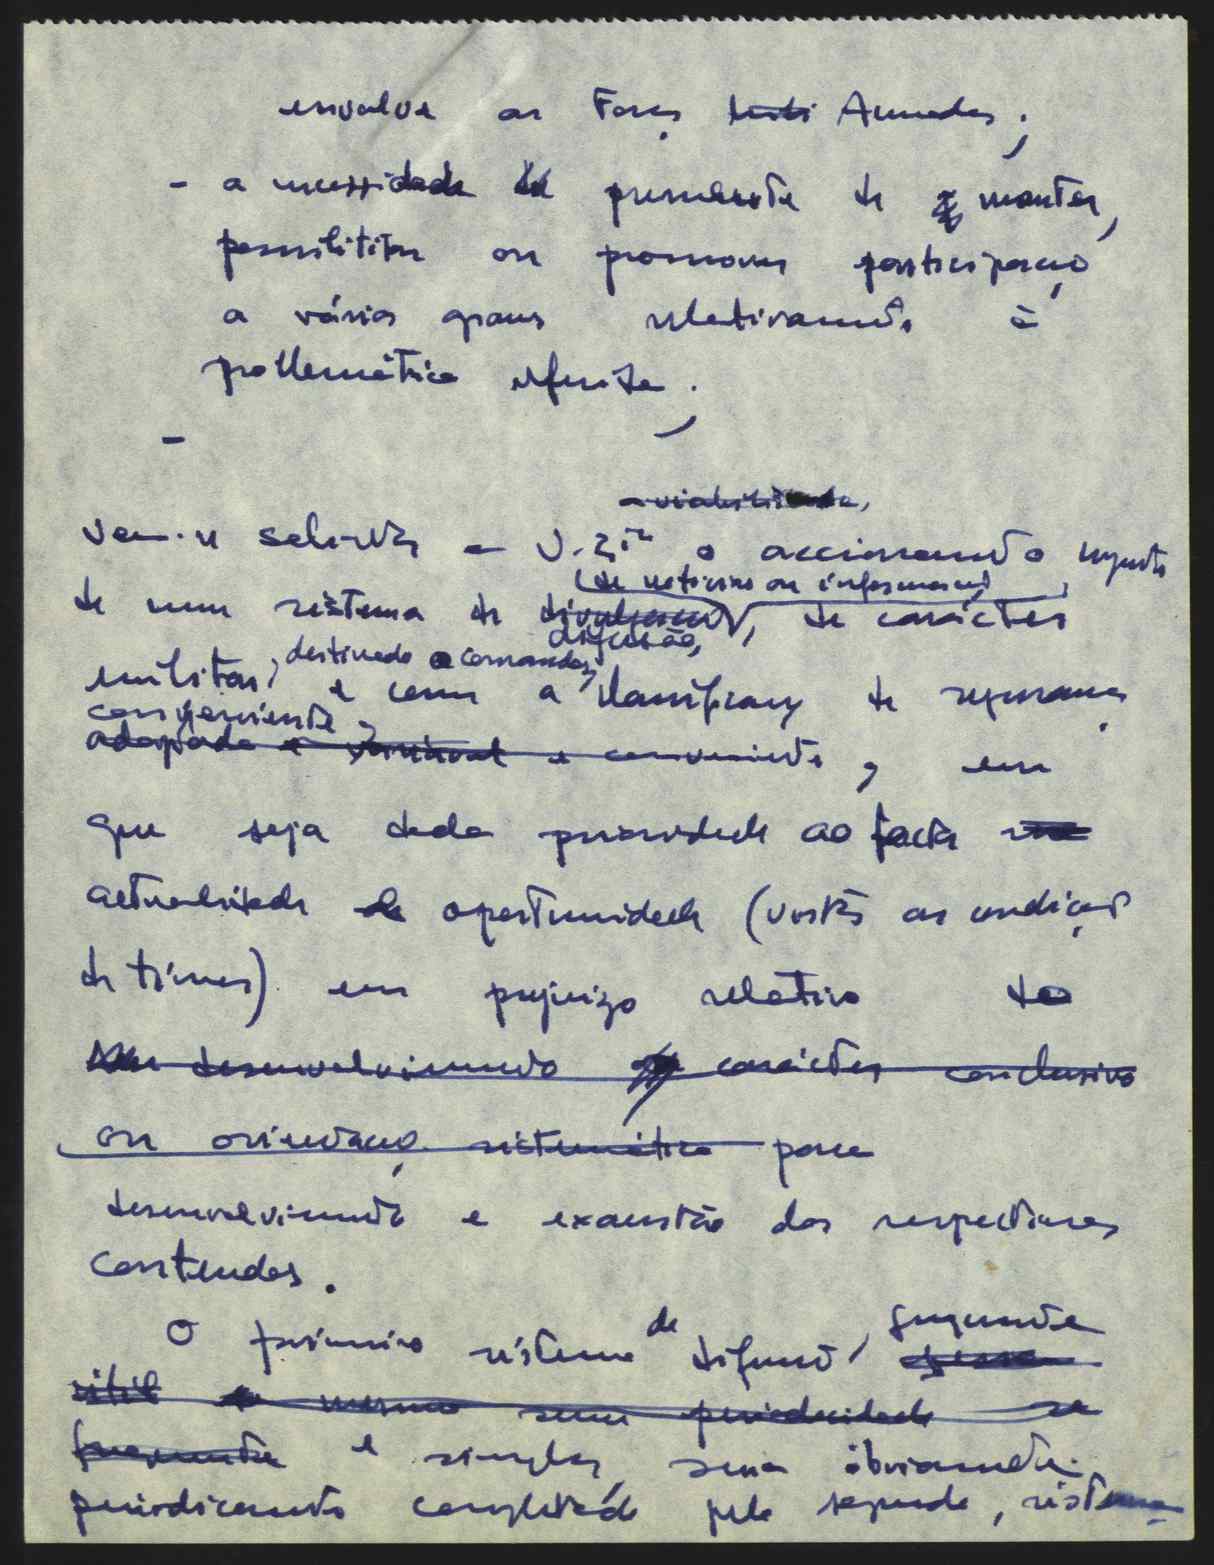 envolve as Forças Armadas;
- a necessidade premente de manter,
possibilitar ou promover participação
a vários graus relativamente à
problemática referida;
-
a viabilidade,
vem-se solicitar a V. Exª o accionamento urgente
(de notícias ou informações)
de um sistema de divulgação, de carácter
difusão,
destinado a comandos,
militar, e com a classificação de segurança
conveniente,
adaptada e variável e conveniente, em
que seja dada prioridade ao facto
actualidade oportunidade (visto as condições
de tímer) em prejuízo relativo do
desenvolvimento carácter conclusivo
ou orientação sistemática para
desenvolvimento e exaustão dos respectivos
conteúdos.
frequente
O primeiro sistema de difusão,
útil mesmo sem periodicidade
frequente e simples, seria obviamente
periodicamente completado pelo segundo, sistema